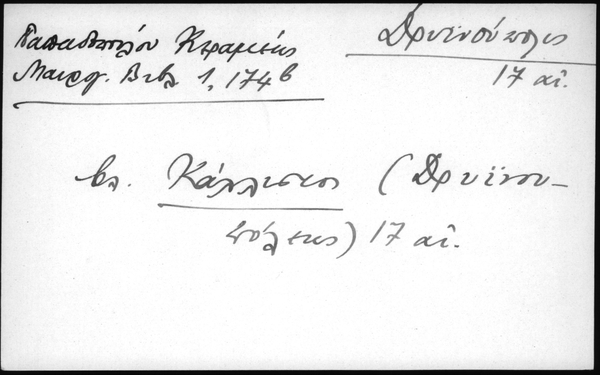 Παπαδοπούλου Κεραμέως
Μαυρογ. Βιβλ 1, 174β
Δρυϊνούπολις
17 αἰ.
βλ. Κάλλιστος (Δρυϊνου-
πόλεως) 17 αἰ.